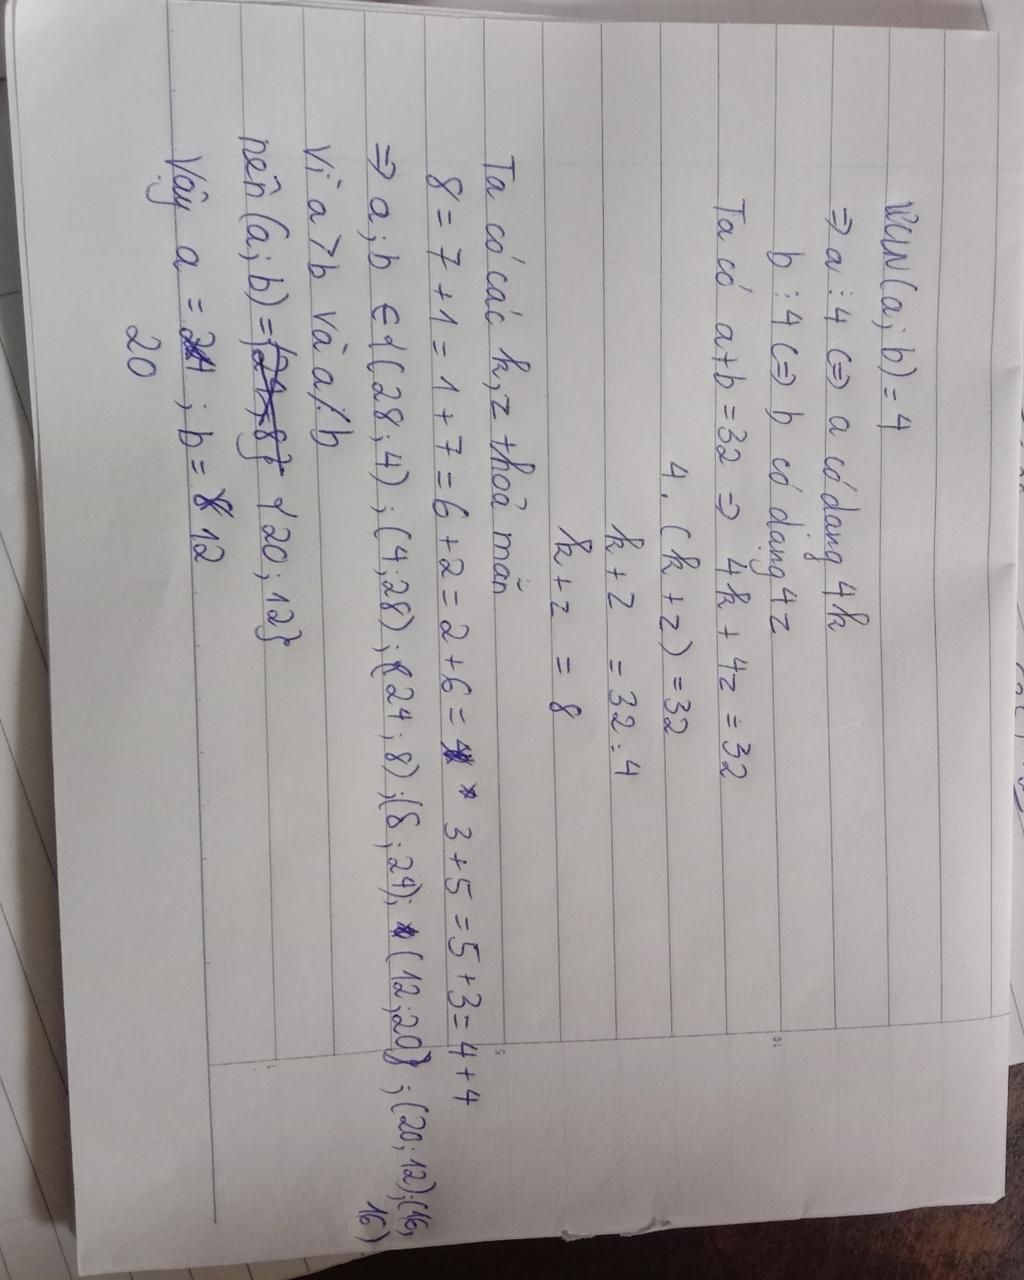 ƯCLN(a; b) = 4
⇒ a ⋮ 4 (=) a có dạng 4k
b ⋮ 4 (=) b có dạng 4z
Ta có a+b = 32 ⇒ 4k + 4z = 32
4. (k + z) = 32
k + z = 32 : 4
k + z = 8
Ta có các k, z thoả mãn
8 = 7 + 1 = 1 + 7 = 6 + 2 = 2 + 6 = 3 + 5 = 5 + 3 = 4 + 4
⇒ a; b ∈ {(28; 4); (4; 28); (24; 8); (8; 24); (12; 20}; (20; 12); (16; 16)
Vì a > b và a ⋮̸ b
nên (a; b) = {24; 8} {20; 12}
Vậy a = ; b = 12
20
10
5